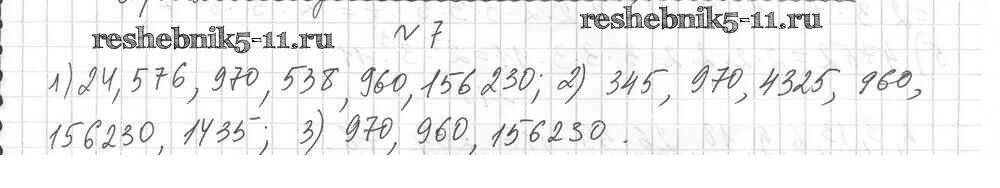 reshebnik5-11.ru
reshebnik5-11.ru
№ 7
1) 24, 576, 970, 538, 960, 156 230; 2) 345, 970, 4325, 960,
156230, 1435; 3) 970, 960, 156230.